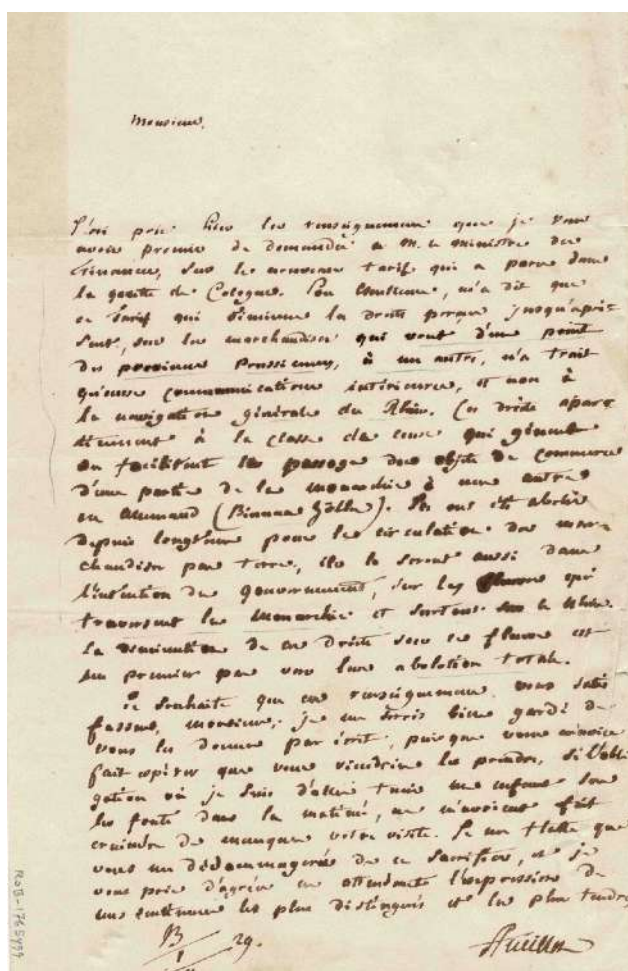 Monsieur,
J'ai pris hier les renseignemens que je vous
avois promis de demander à M. le Ministre des
Finances, sur le nouveau tarif qui a paru dans
la gazette de Cologne. Son Excellence, m'a dit que
ce Tarif qui diminue la droits jusqu'à
sur les marchandises qui vont d'un point
des provinces Prussiennes, à un autre, n'a trait
qu'aux communications intérieures, et non à
la navigation générale du Rhin. Ces droits apar-
tiennent à la classe de ceux qui gênent
ou facilitent les passage des objets de commerce
d'une partie de la monarchie à une autre
en Allemand (Binnen Zölle). Ils ont été abolis
depuis longtems pour les circulation des mar-
chandises par terre, ils le seront aussi dans
l'intention du Gouvernement, sur les fleuves qui
traversent la Monarchie et surtout sur le Rhin.
La diminution de ces droits sur ce fleuve est
un premier pas vers leur abolition totale.
Je souhaite que ces renseignemens vous satis
fassent, Monsieur; je me serois bien gardé de
vous les donner par écrit, puisque vous m'aviez
fait espérer que vous viendriez les prendre, si l'obli
gation où je suis d'aller tenir un enfant sur
les fonts dans la matinée, ne m'avoient fait
craindre de manquer votre visite. Je me flatte que
vous me dédommagerés de ce sacrifice, et je
vous prie d'agréer en attendant l'expression de
mes sentimens les plus distingués et les plus tendres
13/1 29.
Ancillon
RoB-1765yyy